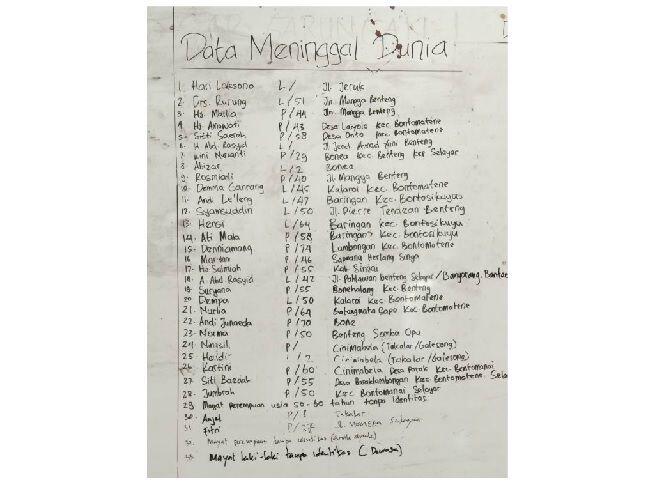 Data Meninggal Dunia
1. Hari Laksono L / Jl. Jeruk
2. Drs. Rurung L / 51 Jln. Mangga Benteng
3. Hj. Marlia P / 44 Jln. Mangga Benteng
4. Hj. Arnawati P / 43 Desa Kec. Bontomatene
5. Sitti Saerah P / 58 Desa Onto Kec. Bontomatene
6. H. Abd. Rasyid L / Jl. Jend. Achmad Yani Benteng
7. Nurianti P / 29 Bonea Kec. Benteng Kab Selayar
8. Abizar L / 2 Bonea
9. Rosmiati P / 40 Jl. Mangga Benteng
10. Demma Gareang L / 45 Kalaroi Kec. Bontomatene
11. Andi Le'leng L / 47 Baringan Kec. Bontosikuyu
12. Syamsuddin L / 50 Jl. Pierre Tendean Benteng
13. Hensi L / 64 Baringan Kec. Bontosikuyu
14. Ati Mala P / 58 Baringan Kec. Bontosikuyu
15. Denniamang P / 74 Lambongan Kec. Bontomatene
16. P / 46 Herlang Sinjai
17. Hj. Salmiah P / 55 Kab. Sinjai
18. A. Abd. Rasyid L / 42 Jl. Pahlawan Benteng Selayar /
19. Suryana P / 55 Bonehalang Kec. Benteng
20. Dempa L / 50 Kalaroi Kec. Bontomatene
21. Nurlia P / 64 Kec. Bontomatene
22. Andi Junaeda P / 70 Bone
23. Nurma P / 50 Benteng Somba Opu
24. P / Cinimabela (Takalar / Galesong)
25. / 2 Cinimabela (Takalar / Galesong)
26. Kartini P / 60 Cinimabela Desa Parak Kec. Bontomanai
27. Siti Basdah P / 55 Desa Kec. Bontomatene
28. Jumbrah P / 50 Kec. Bontomanai Selayar
29. Mayat Perempuan usia 50-60 tahun tanpa identitas
30. Anjel P / Takalar
31. Fitri P /
32. Mayat perempuan tanpa identitas
33. Mayat laki-laki tanpa identitas (Dewasa)